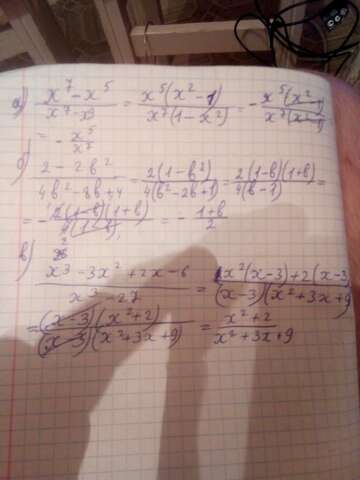 а) (x⁷ - x⁵)/(x⁷ - x⁹) = x⁵(x² - 1)/x⁷(1 - x²) = - x⁵(x² - 1)/x⁷(x² - 1)
= - x⁵/x⁷
б) (2 - 2b²)/(4b² - 8b + 4) = 2(1 - b²)/4(b² - 2b + 1) = 2(1 - b)(1 + b)/4(b - 1) =
= - 2(1 - b)(1 + b)/4(1 - b) = - (1 + b)/2
2
в) (x³ - 3x² + 2x - 6)/(x³ - 27) = x²(x - 3) + 2(x - 3)/(x - 3)(x² + 3x + 9)
= (x - 3)(x² + 2)/(x - 3)(x² + 3x + 9) = (x² + 2)/(x² + 3x + 9)